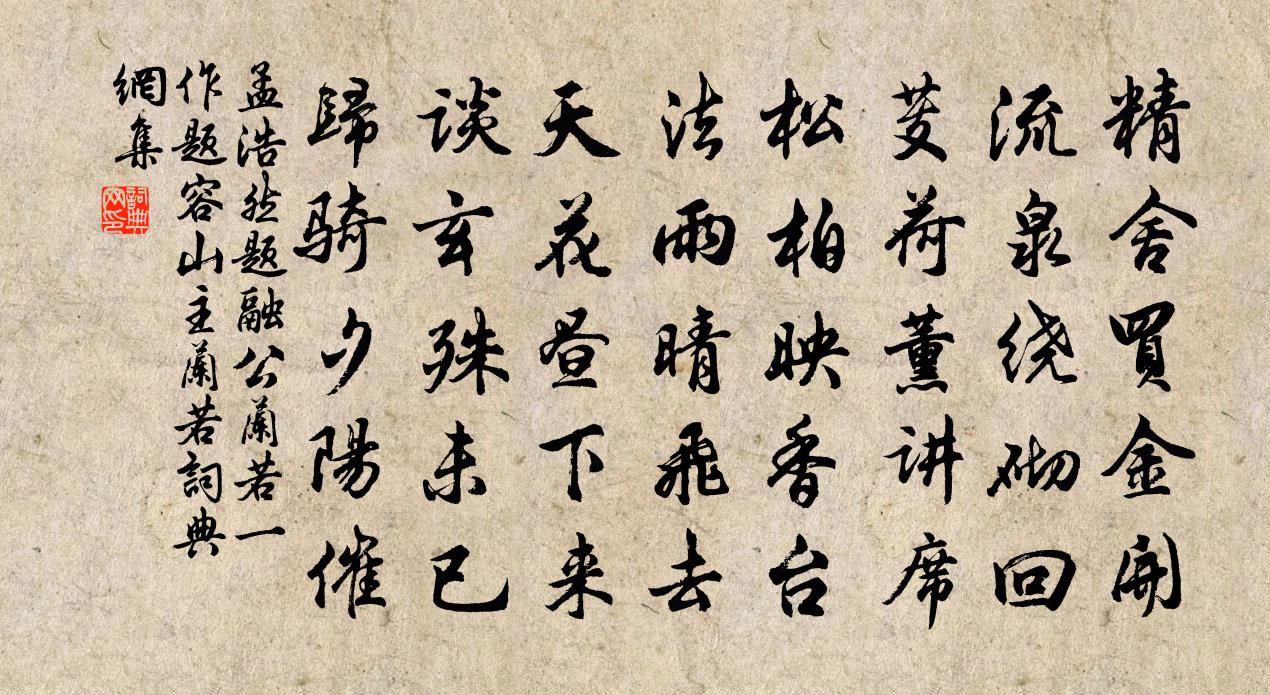 精舍買金開
流泉绕砌回
芰荷薰讲席
松柏映香台
法雨晴飛去
天花昼下来
谈玄殊未已
歸騎夕陽催
孟浩然题融公蘭若一
作题容山主蘭若詞典
網集
詞典網印